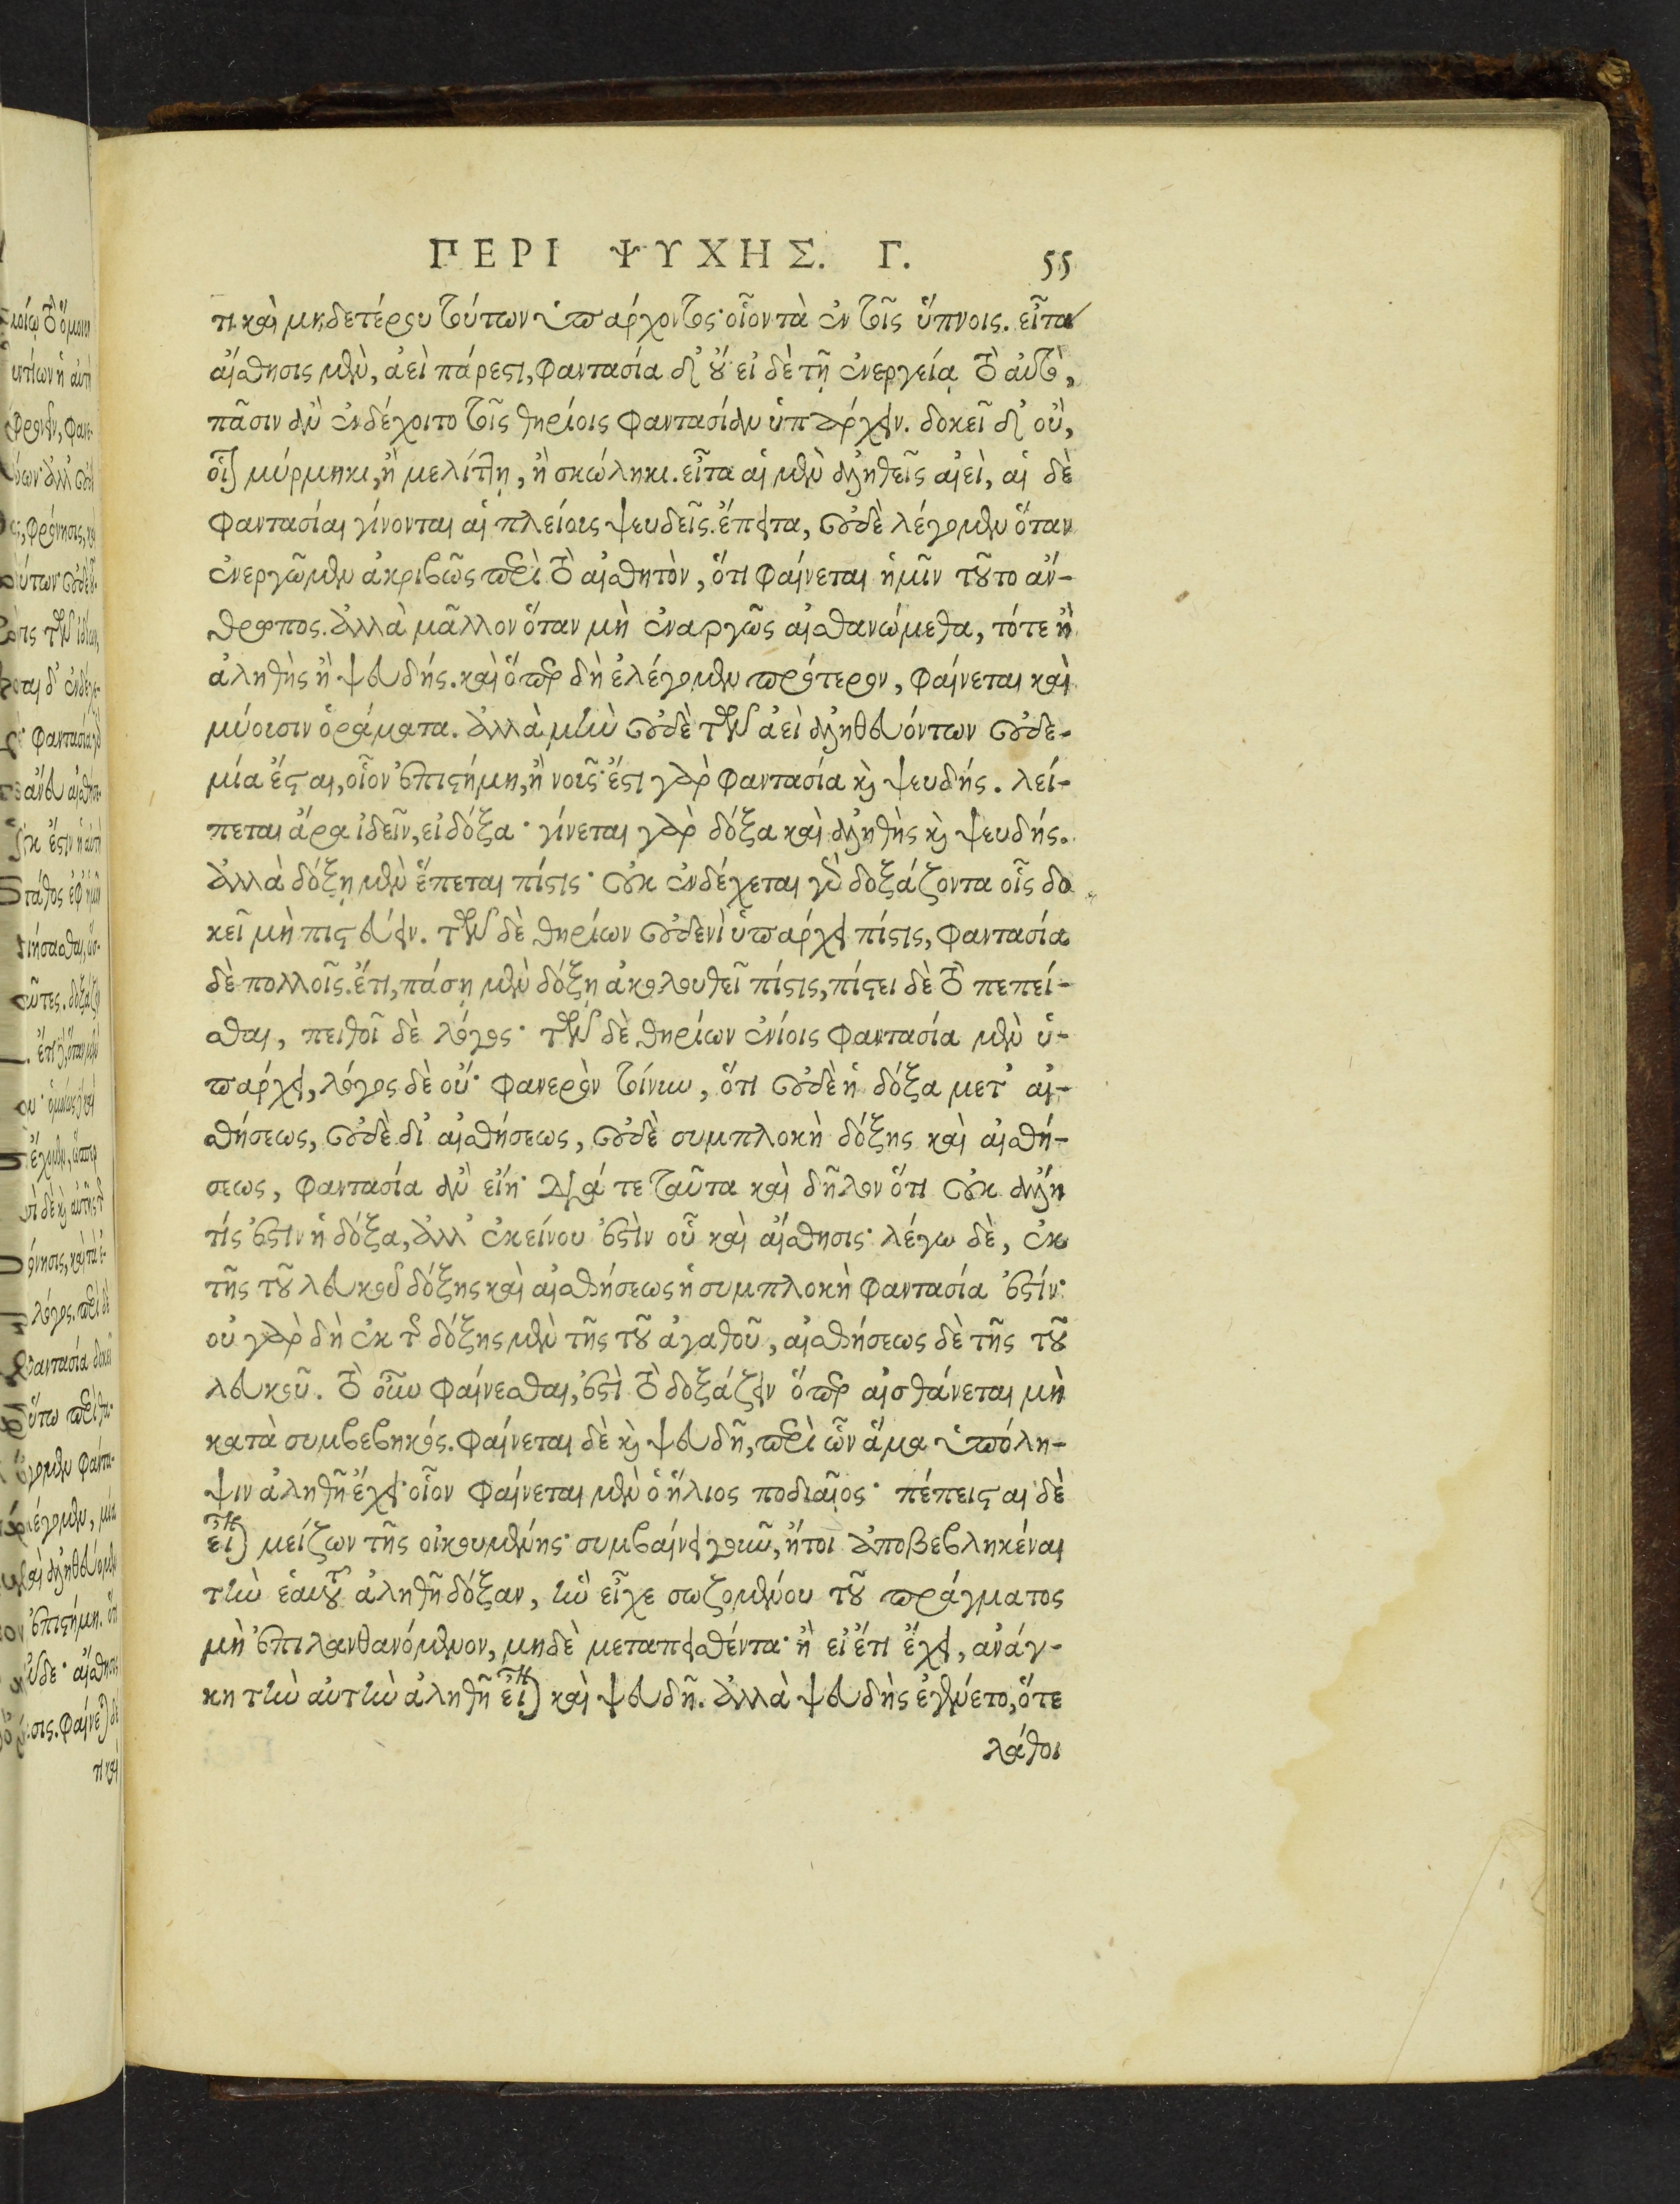 ΠΕΡΙ ΨΥΧΗΣ. Γ. 55
τι καὶ μηδετέρου τούτων ὑπάρχοντος· οἷον τὰ ἐν τοῖς ὕπνοις. εἶτα
αἴσθησις μὲν, ἀεὶ πάρεστι, φαντασία δ' οὔ· εἰ δὲ τῇ ἐνεργείᾳ τὸ αὐτὸ,
πᾶσιν ἂν ἐνδέχοιτο τοῖς θηρίοις φαντασίαν ὑπάρχειν. δοκεῖ δ' οὒ,
οἷον μύρμηκι, ἢ μελίττῃ, ἢ σκώληκι. εἶτα αἱ μὲν ἀληθεῖς αἰεὶ, αἱ δὲ
φαντασίαι γίνονται αἱ πλείους ψευδεῖς. ἔπειτα, οὐδὲ λέγομεν ὅταν
ἐνεργῶμεν ἀκριβῶς περὶ τὸ αἰσθητὸν, ὅτι φαίνεται ἡμῖν τοῦτο ἄν-
θρωπος. ἀλλὰ μᾶλλον ὅταν μὴ ἐναργῶς αἰσθανώμεθα, τότε ἢ
ἀληθὴς ἢ ψευδής. καὶ ὅπερ δὴ ἐλέγομεν πρότερον, φαίνεται καὶ
μύουσιν ὁράματα. ἀλλὰ μὴν οὐδὲ τῶν ἀεὶ ἀληθευόντων οὐδε-
μία ἔσται, οἷον ἐπιστήμη, ἢ νοῦς· ἔστι γὰρ φαντασία καὶ ψευδής. λεί-
πεται ἄρα ἰδεῖν, εἰ δόξα· γίνεται γὰρ δόξα καὶ ἀληθὴς καὶ ψευδής.
ἀλλὰ δόξῃ μὲν ἕπεται πίστις· οὐκ ἐνδέχεται γὰρ δοξάζοντα οἷς δο
κεῖ μὴ πιστεύειν. τῶν δὲ θηρίων οὐδενὶ ὑπάρχει πίστις, φαντασία
δὲ πολλοῖς. ἔτι, πάσῃ μὲν δόξῃ ἀκολουθεῖ πίστις, πίστει δὲ τὸ πεπεί-
σθαι, πειθοῖ δὲ λόγος· τῶν δὲ θηρίων ἐνίοις φαντασία μὲν ὑ-
πάρχει, λόγος δὲ οὔ· φανερὸν τοίνυν, ὅτι οὐδὲ ἡ δόξα μετ' αἰ-
σθήσεως, οὐδὲ δι' αἰσθήσεως, οὐδὲ συμπλοκὴ δόξης καὶ αἰσθή-
σεως, φαντασία ἂν εἴη· διά τε ταῦτα καὶ δῆλον ὅτι οὐκ ἄλλη
τίς ἐστιν ἡ δόξα, ἀλλ' ἐκείνου ἐστὶν οὗ καὶ αἴσθησις· λέγω δὲ, ἐκ
τῆς τοῦ λευκοῦ δόξης καὶ αἰσθήσεως ἡ συμπλοκὴ φαντασία ἐστίν·
οὐ γὰρ δὴ ἐκ τῆς δόξης μὲν τῆς τοῦ ἀγαθοῦ, αἰσθήσεως δὲ τῆς τοῦ
λευκοῦ. τὸ οὖν φαίνεσθαι, ἐστὶ τὸ δοξάζειν ὅπερ αἰσθάνεται μὴ
κατὰ συμβεβηκός. φαίνεται δὲ καὶ ψευδῆ, περὶ ὧν ἅμα ὑπόλη-
ψιν ἀληθῆ ἔχει· οἷον φαίνεται μὲν ὁ ἥλιος ποδιαῖος· πέπεισται δὲ
εἶναι μείζων τῆς οἰκουμένης· συμβαίνει γοῦν, ἤτοι ἀποβεβληκέναι
τὴν ἑαυτοῦ ἀληθῆ δόξαν, ἣν εἶχε σωζομένου τοῦ πράγματος
μὴ ἐπιλανθανόμενον, μηδὲ μεταπεισθέντα· ἢ εἰ ἔτι ἔχει, ἀνάγ-
κη τὴν αὐτὴν ἀληθῆ εἶναι καὶ ψευδῆ. ἀλλὰ ψευδὴς ἐγένετο, ὅτε
λάθοι